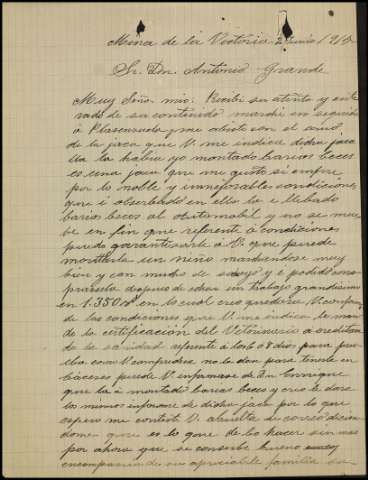 Mina de la Victoria 2 Junio 1910
Sr. Dn. Antonio Grande
Muy Señor mio: Recibi su atenta y ente
rado de su contenido marché en seguida
á Plasenzuela y me aviste con el amo
de la jaca que V. me indica dicha jaca
lla la habia yo montado barias beces
es una jaca que me gustó siempre
por lo noble y inmejorable condiciones
que é obserbado en ella la e llebado
barias beces al automobil y no se mue
be en fin que referente á condiciones
puedo garantisarle á V. que puede
montarla un niño marchandose muy
bien y con mucho de suyo y e podido
despues de echar un trabajo grandisimo
en 1.350 rs. en lo cual creo quedara V. conforme
de las condiciones que V. me indica le man
do la certificación del Veterinario acreditan
do la sanidad referente á los 6 ó 8 dias para prue
ba como V. comprendera no la dan para tenerla en
Cáceres puede V. informarse de Dn Enrrique
que la á montado barias beces y creo le dara
los mismos informes de dicha jaca por lo que
espero me conteste V. á buelta de correo dicien
dome que es lo que debo hacer sin mas
por ahora que se conserbe bueno
en compania de su apreciable familia su